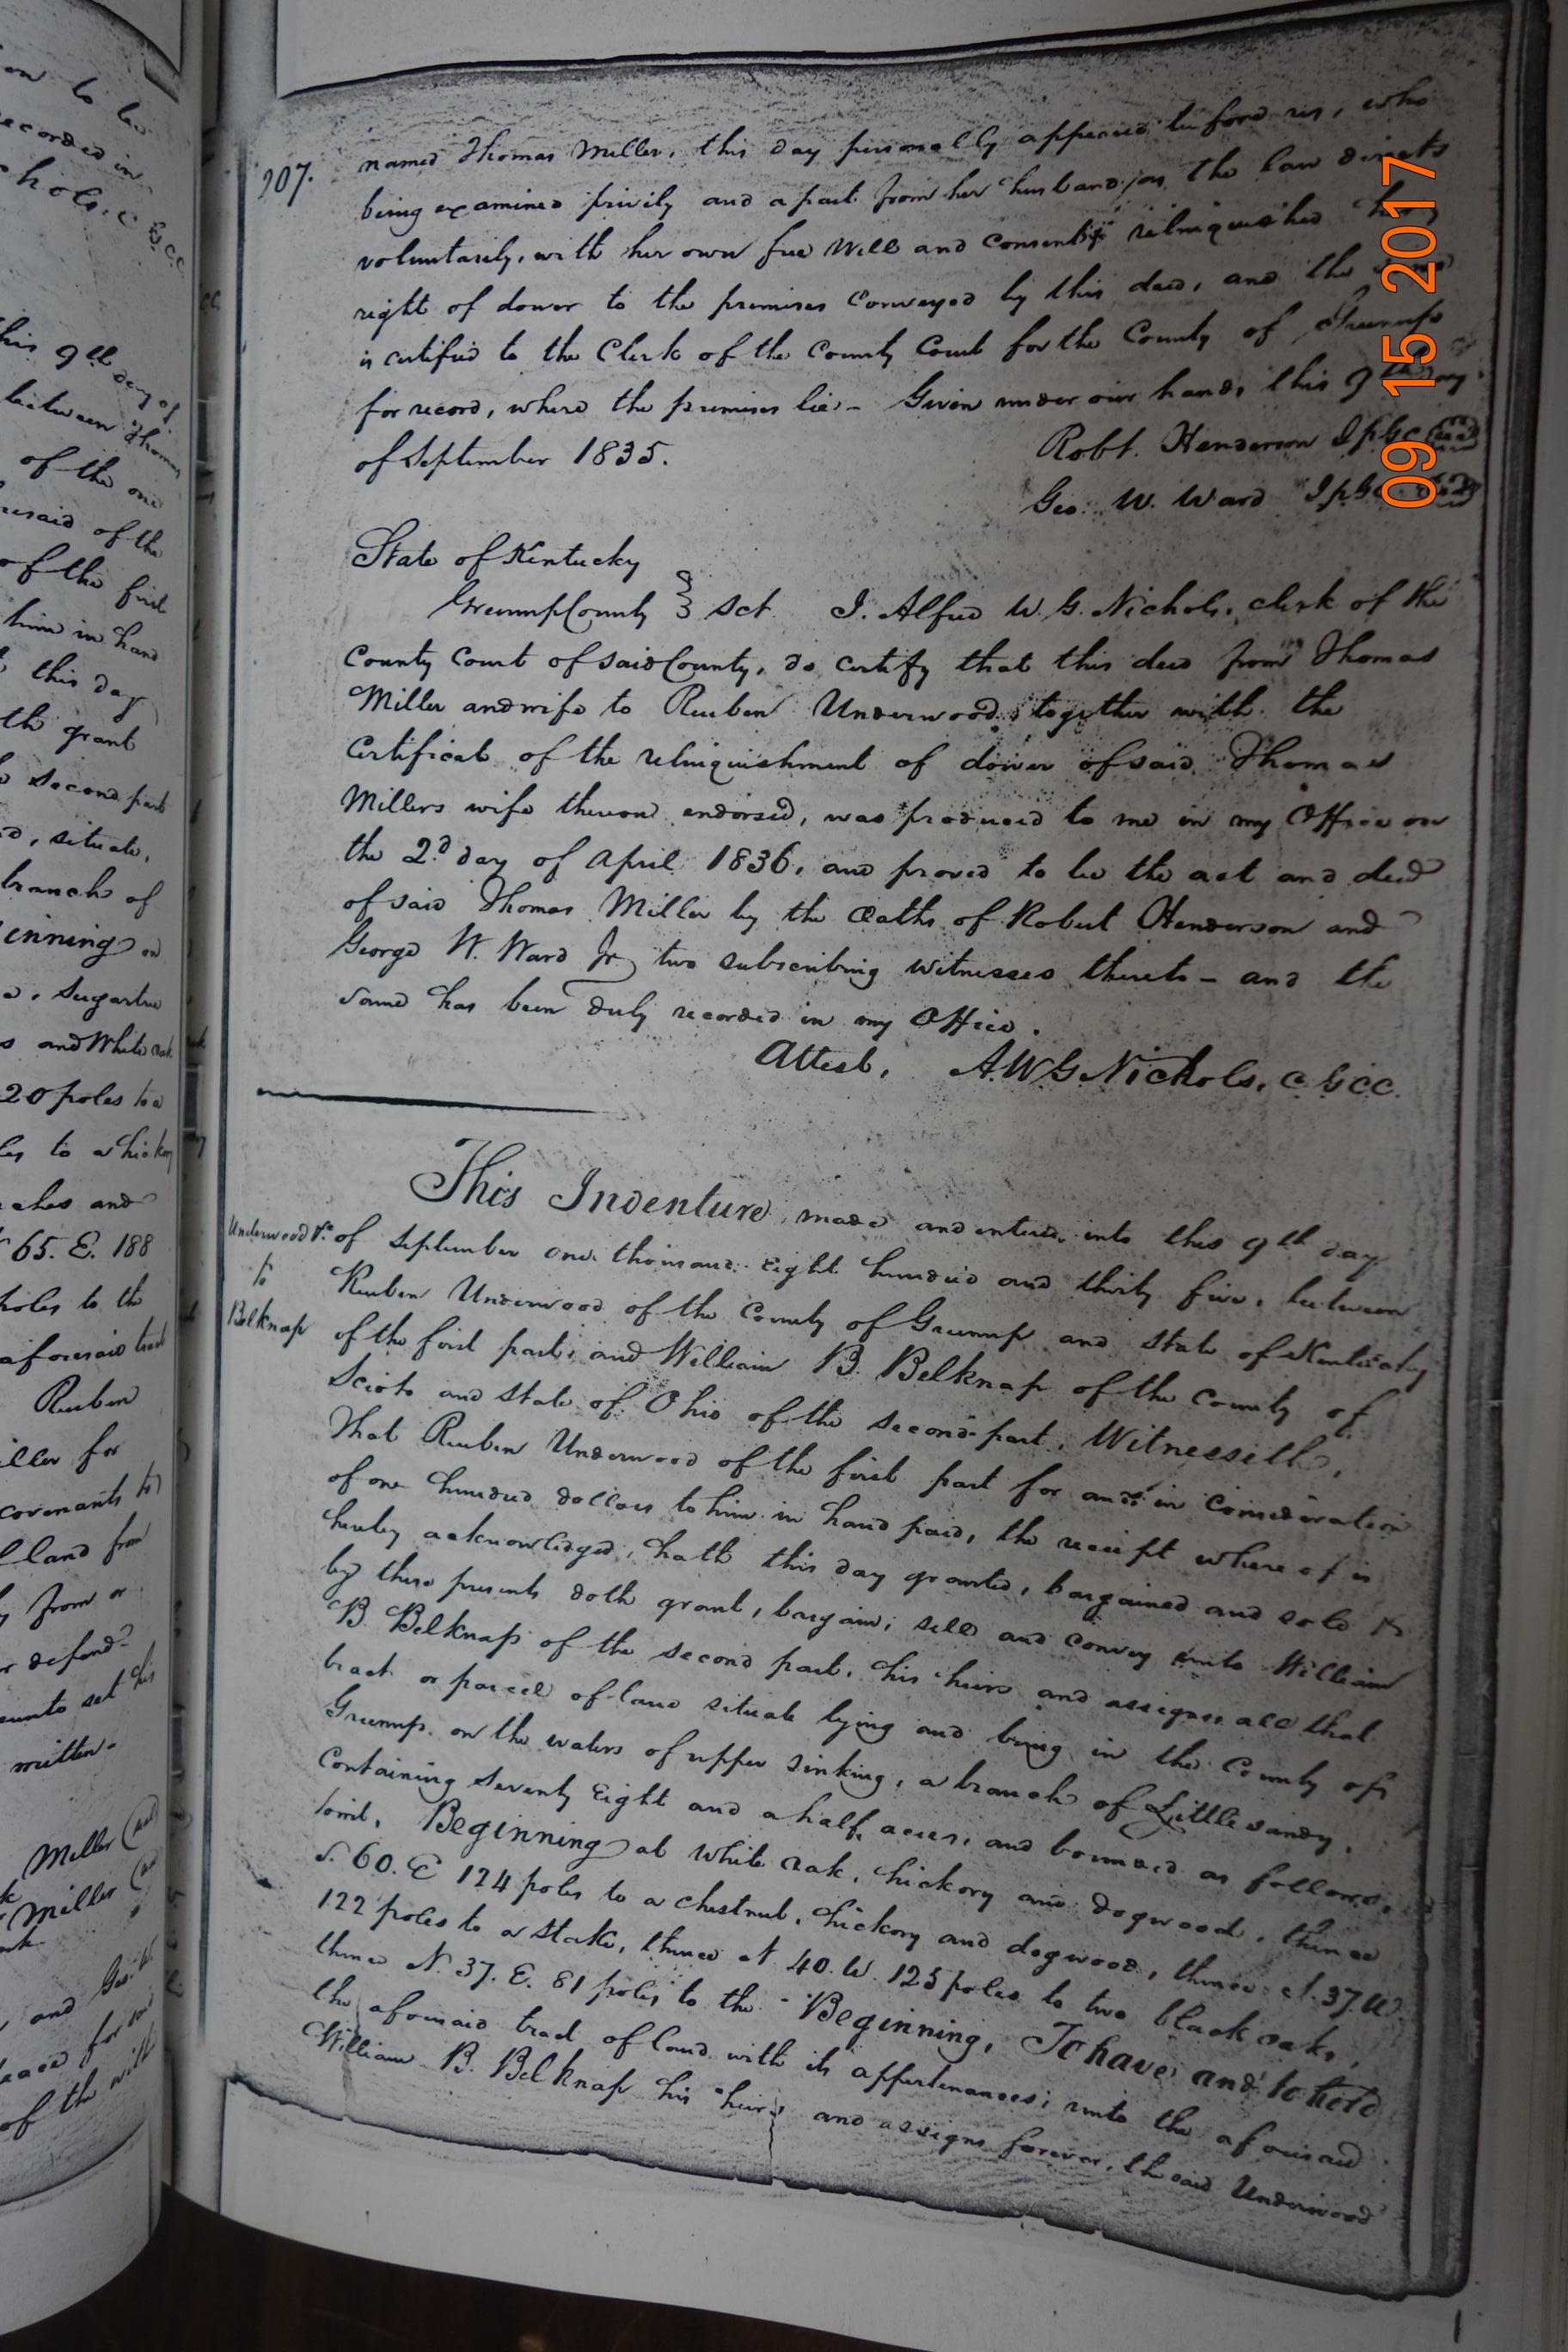 207.
named Thomas Miller, this day personally appeared before us, who
being examined privily and apart from her husband, as the law directs
voluntarily, with her own free Will and consent, relinquished her
right of dower to the premises conveyed by this deed, and the same
is certified to the Clerk of the County Court for the County of Greenup
for record, where the premises lie - Given under our hands this 9th day
of September 1835.
Robt. Henderson Jpgc (seal)
Geo: W. Ward Jpgc (seal)
State of Kentucky
Greenup County } Sct. I. Alfred W. G. Nichols, clerk of the
County Court of said County, do certify that this deed from Thomas
Miller and wife to Reuben Underwood, together with the
Certificate of the relinquishment of dower of said Thomas
Millers wife thereon endorsed, was produced to me in my Office on
the 2d day of April 1836, and proved to be the act and deed
of said Thomas Miller by the Oaths of Robert Henderson and
George W. Ward Jr, two subscribing witnesses thereto - and the
same has been duly recorded in my Office.
Attest, A.W.G. Nichols, C.G.C.C.
This Indenture, made and entered into this 9th day
Underwood
to
Belknap
of September one thousand eight hundred and thirty five, between
Reuben Underwood of the County of Greenup and State of Kentucky
of the first part, and William B. Belknap of the County of
Scioto and State of Ohio of the second part, Witnesseth,
That Reuben Underwood of the first part for and in consideration
of one hundred dollars to him in hand paid, the receipt where of is
hereby acknowledged, hath this day granted, bargained and sold &
by these presents doth grant, bargain, sell and convey unto William
B. Belknap of the second part, his heirs and assignes all that
tract or parcel of land situate lying and being in the County of
Greenup on the waters of upper sinking, a branch of Little sandy,
Containing Seventy Eight and a half acres, and bounded as follows,
towit, Beginning at White oak, hickory and dogwood, thence
S. 60. E 124 poles to a chestnut, hickory and dogwood, thence S. 37. W.
122 poles to a stake, thence N 40. W. 125 poles to two black oaks,
thence N. 37. E. 81 poles to the Beginning, To have and to hold
the aforesaid tract of land with its appertenances, unto the aforesaid
William B. Belknap his heirs and assigns forever, the said Underwood
09 15 2017
his 9th day of
between Thomas
of the one
of the
of the first
him in hand
this day
th grant
second part
situate,
branch of
Sugartree
and White oak
20 poles to a
to a hickory
and
65. E. 188
poles to the
aforesaid tract
Reuben
for
covenants to
land from
from or
defend
unto set his
written-
Miller (seal)
Miller
and Geo. W
of the with